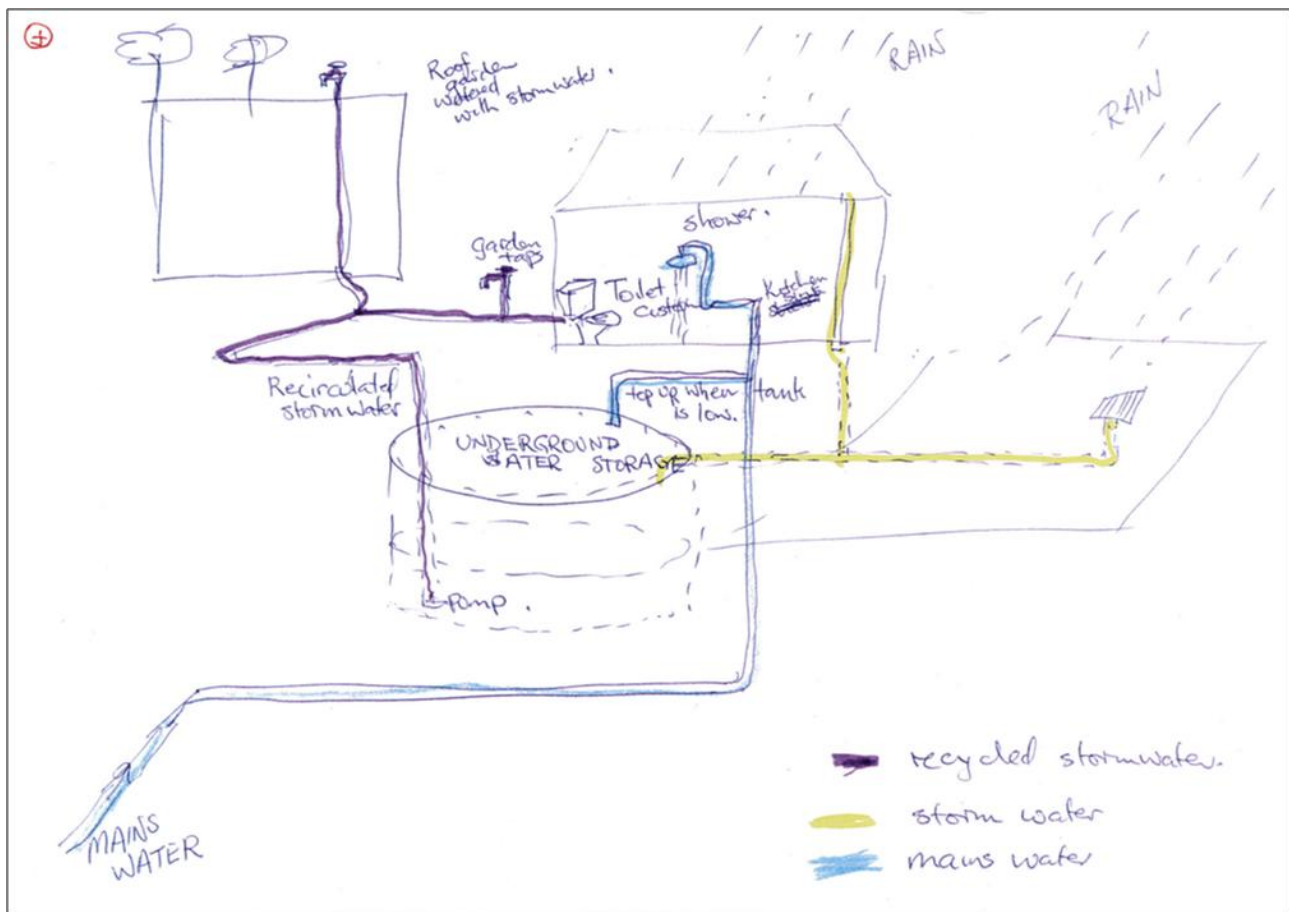 Roof
garden
watered
with stormwater.
RAIN
RAIN
shower.
garden
taps
Toilet
Kitchen
Recirculated
storm water
top up when tank
is low.
UNDERGROUND
WATER STORAGE
pump.
MAINS
WATER
recycled stormwater.
storm water
mains water